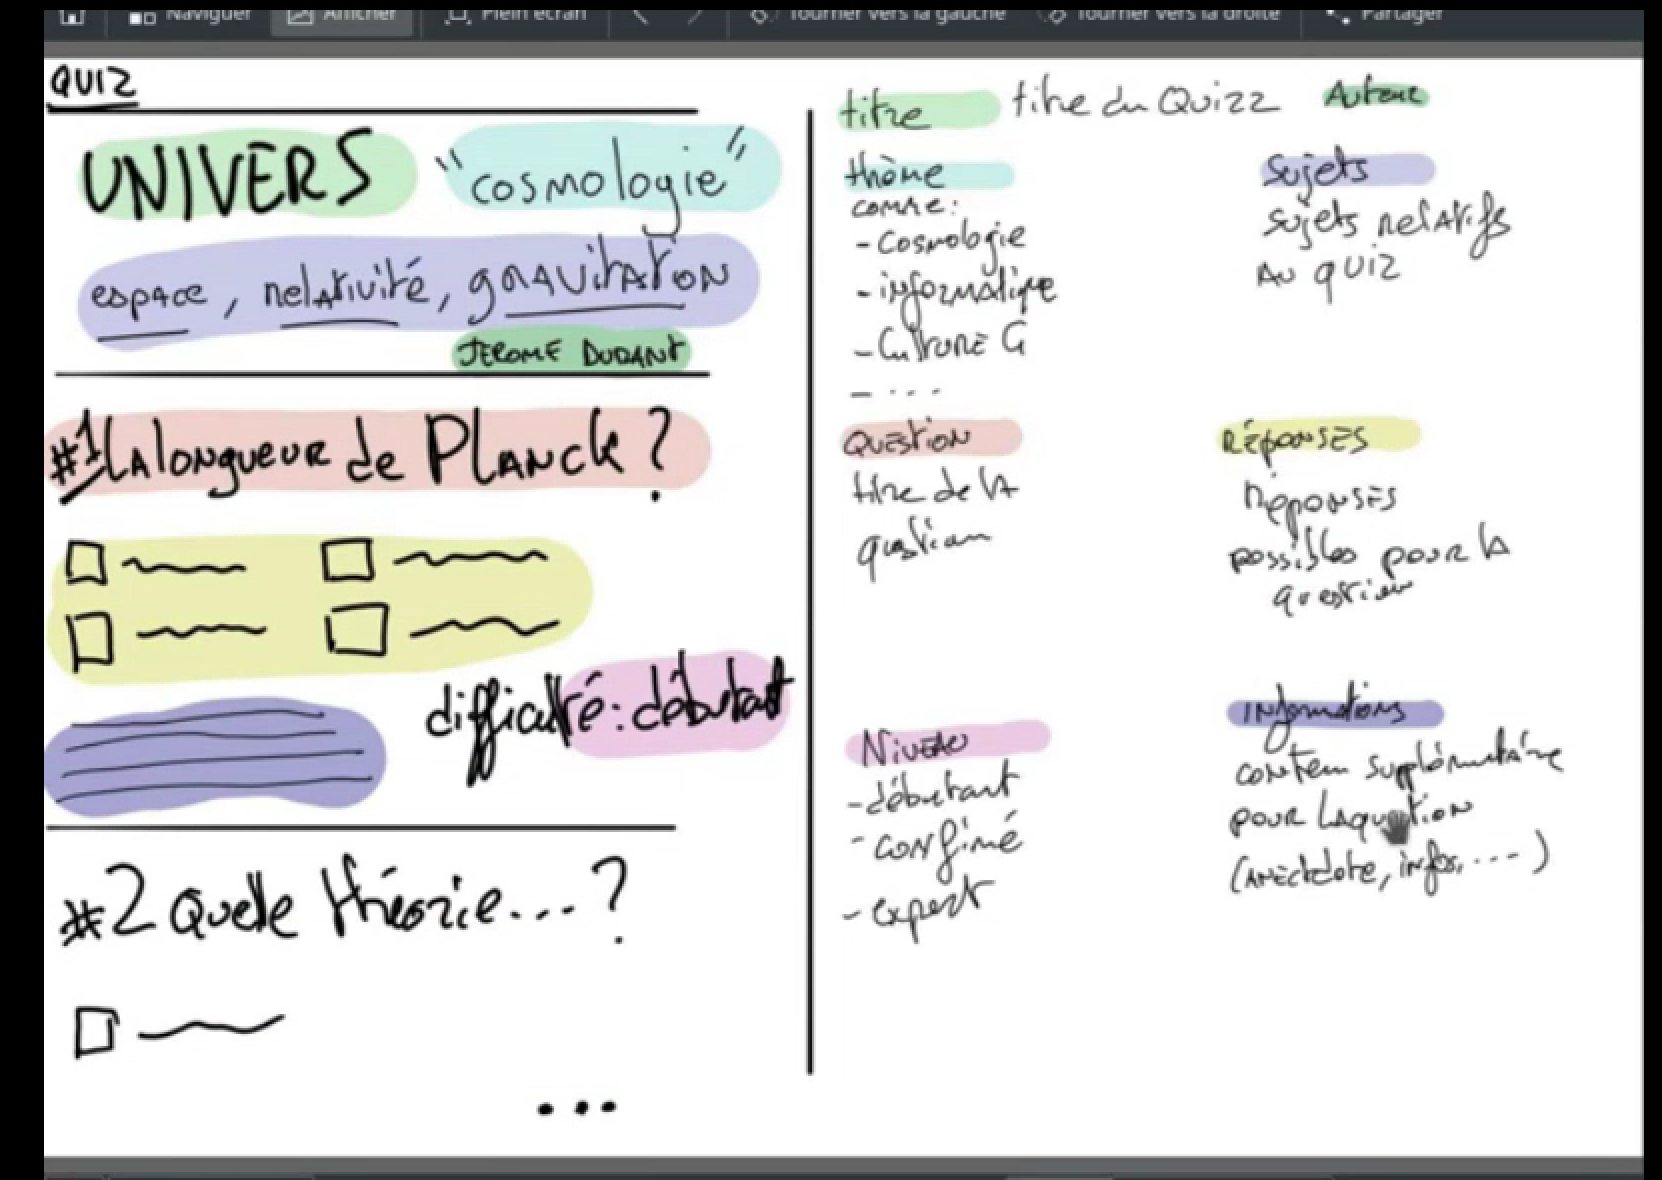 Naviguer Afficher Plein écran Tourner vers la gauche Tourner vers la droite Partager
QUIZ
UNIVERS "cosmologie"
espace, relativité, gravitation
JEROME DURANT
#1 La longueur de Planck ?
difficulté : débutant
#2 Quelle théorie...?
...
titre titre du Quizz Auteur
thème
comme :
- Cosmologie
- informatique
- Culture G
- ...
Sujets
sujets relatifs
au quiz
QUESTION
titre de la
question
RÉPONSES
Réponses
possibles pour la
question
Niveau
- débutant
- confirmé
- expert
Informations
contenu supplémentaire
pour la question
(anecdote, infos, ....)